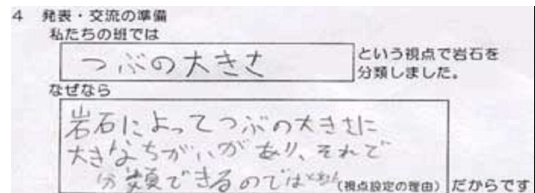 4 発表・交流の準備
私たちの班では
つぶの大きさ
という視点で岩石を
分類しました。
なぜなら
岩石によってつぶの大きさに
大きなちがいがあり、それで
分類できるのでは
(視点設定の理由) だからです